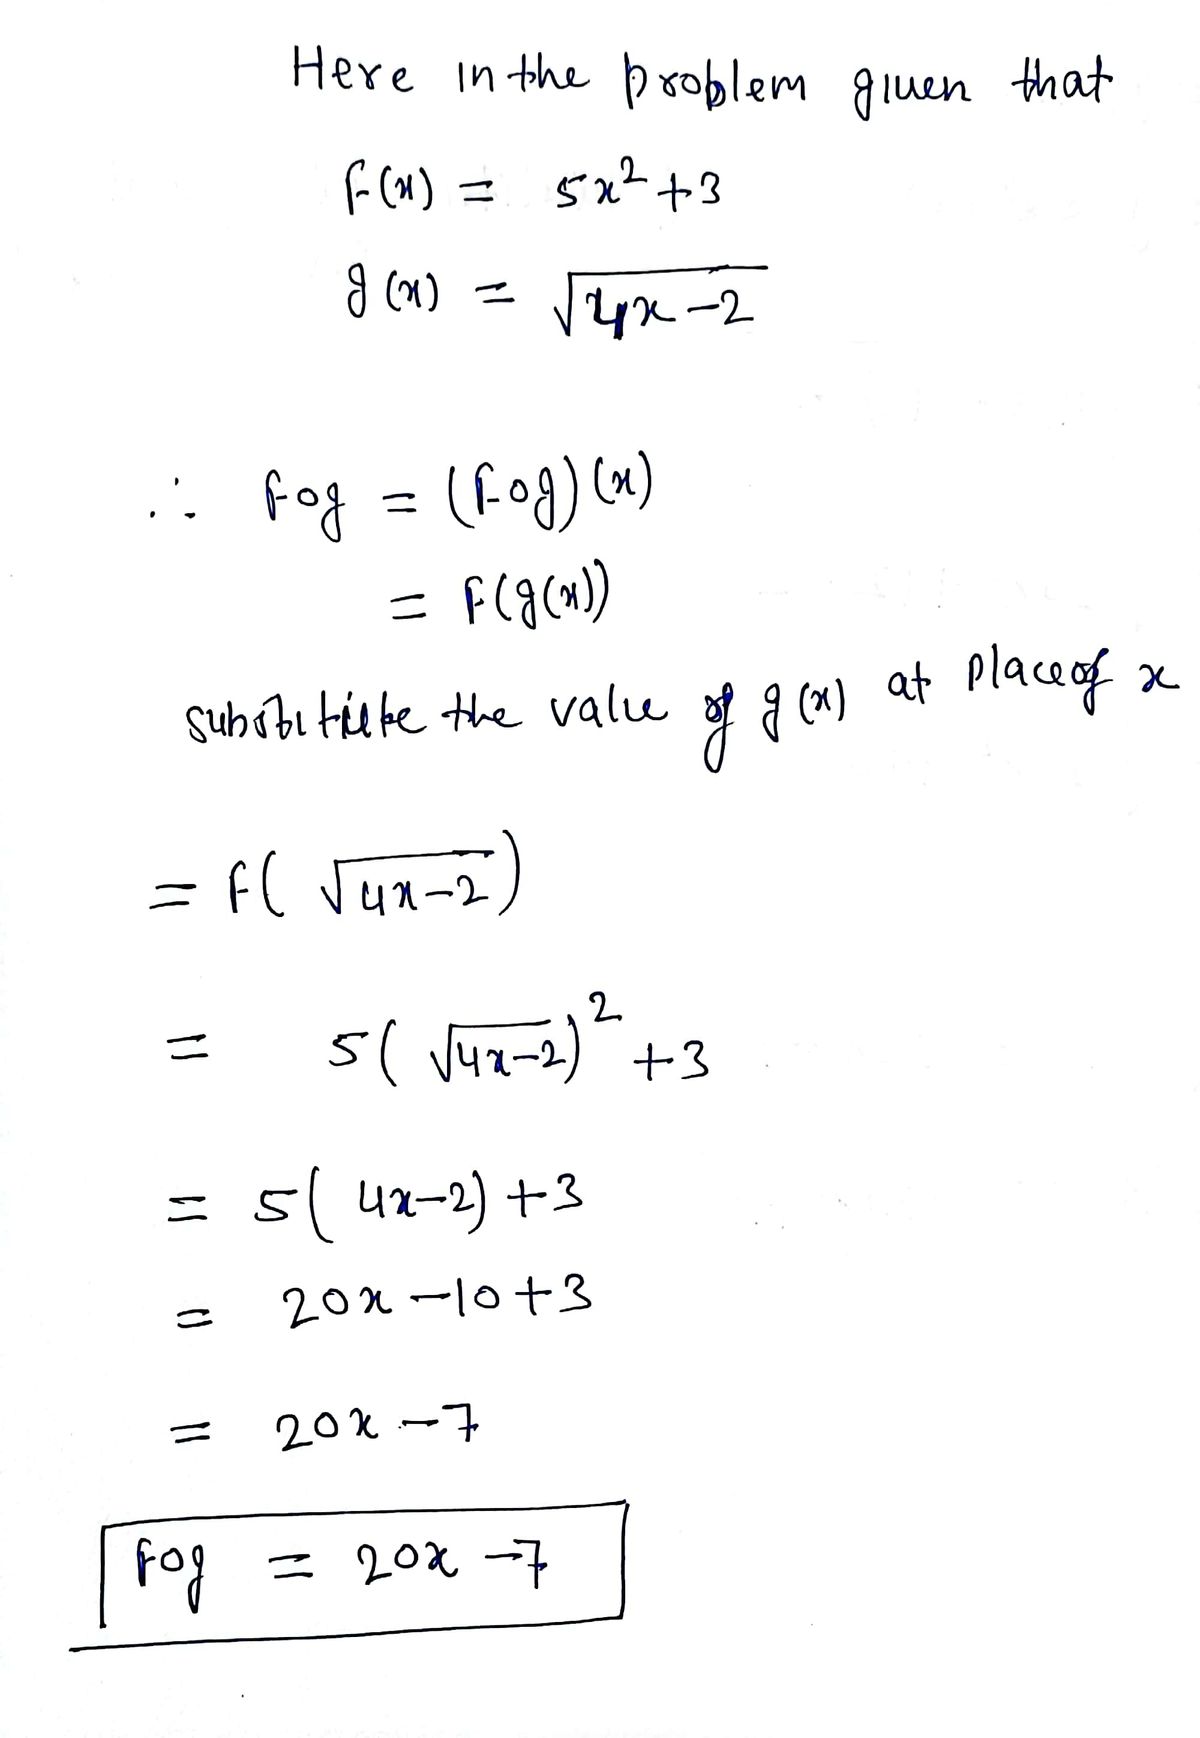 Here in the problem given that
f(x) = 5x² + 3
g(x) = √(4x - 2)
∴ fog = (fog)(x)
= f(g(x))
substitute the value of g(x) at place of x
= f(√(4x-2))
= 5(√(4x-2))² + 3
= 5(4x-2) + 3
= 20x - 10 + 3
= 20x - 7
fog = 20x - 7